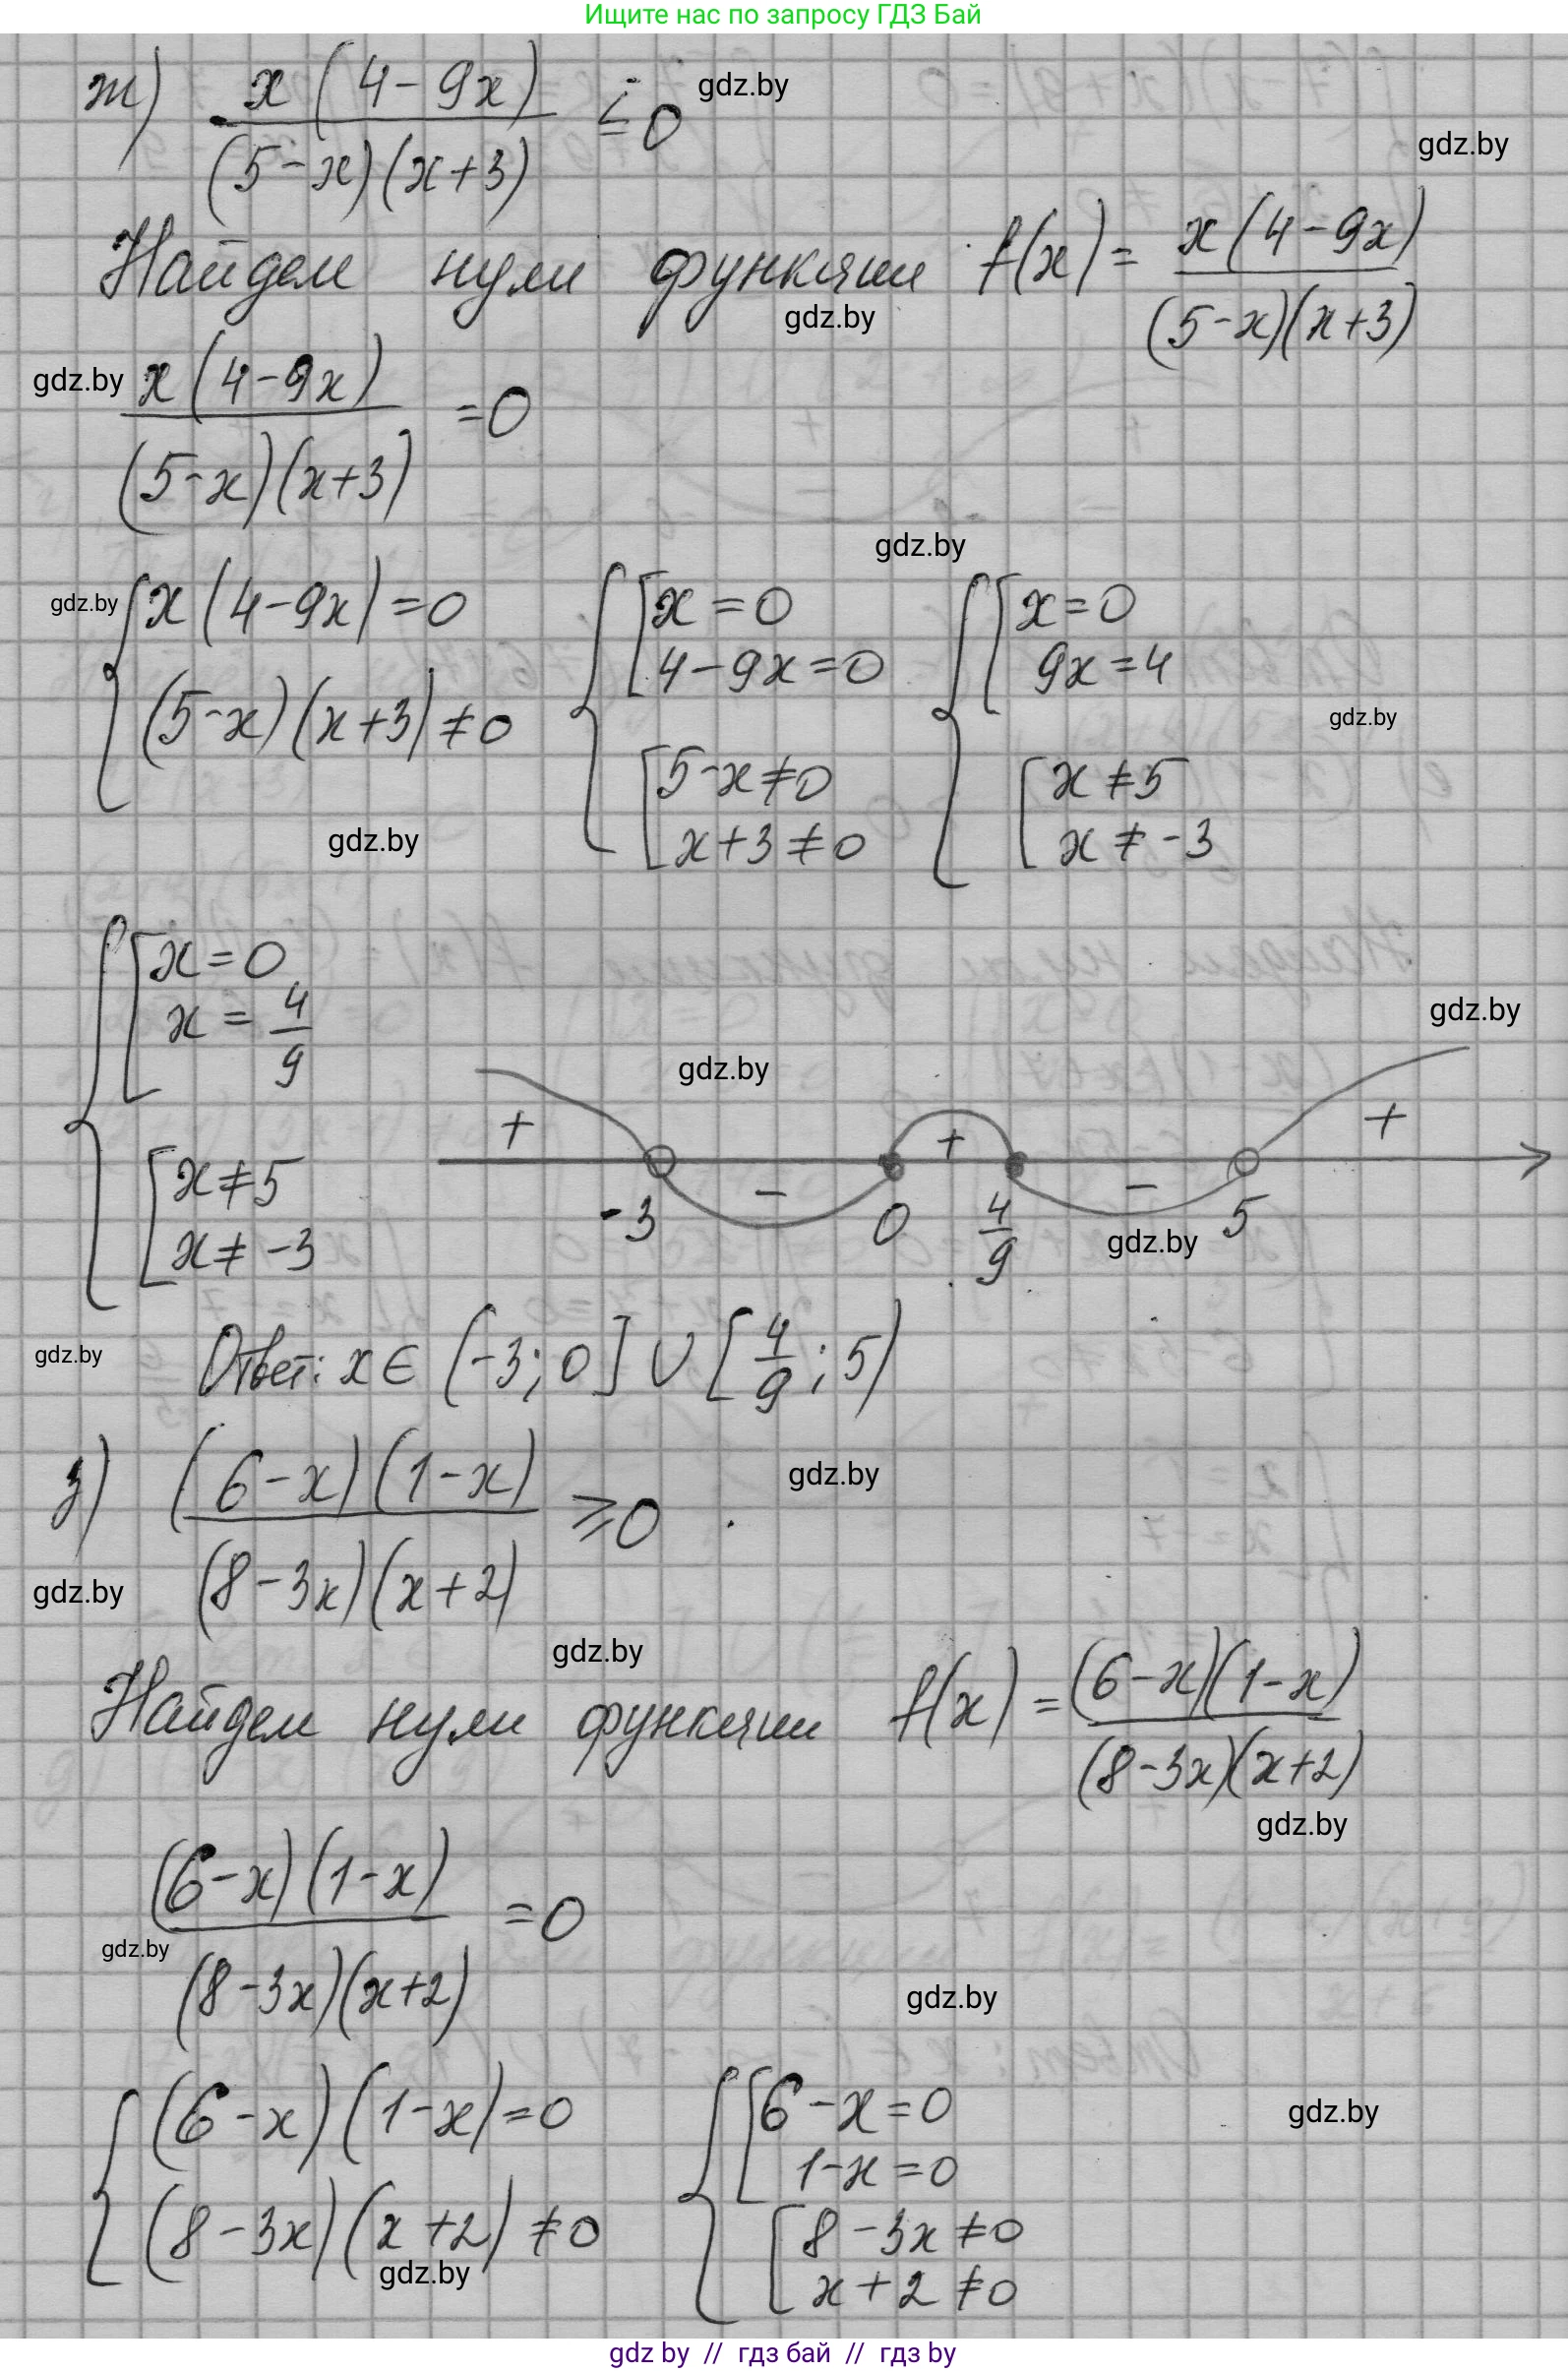 Ищите нас по запросу ГДЗ Бай
ж) x(4-9x) / (5-x)(x+3) ≤ 0
gdz.by
gdz.by
Найдем нули функции f(x) = x(4-9x) / (5-x)(x+3)
gdz.by
gdz.by
x(4-9x) / (5-x)(x+3) = 0
gdz.by
gdz.by
{ x(4-9x) = 0 { [ x = 0 { [ x = 0
4-9x = 0 9x = 4
gdz.by
(5-x)(x+3) ≠ 0 [ 5-x ≠ 0 [ x ≠ 5
x+3 ≠ 0 x ≠ -3
gdz.by
{ [ x = 0
x = 4/9
gdz.by
gdz.by
+ + +
[ x ≠ 5 - -
x ≠ -3 -3 0 4/9 5
gdz.by
gdz.by
Ответ: x ∈ (-3; 0] ∪ [4/9; 5)
з) (6-x)(1-x) / (8-3x)(x+2) ≥ 0
gdz.by
gdz.by
gdz.by
Найдем нули функции f(x) = (6-x)(1-x) / (8-3x)(x+2)
gdz.by
(6-x)(1-x) / (8-3x)(x+2) = 0
gdz.by
gdz.by
{ (6-x)(1-x) = 0 { [ 6-x = 0
gdz.by
1-x = 0
(8-3x)(x+2) ≠ 0 [ 8-3x ≠ 0
gdz.by
x+2 ≠ 0
gdz by // гдз бай // гдз by